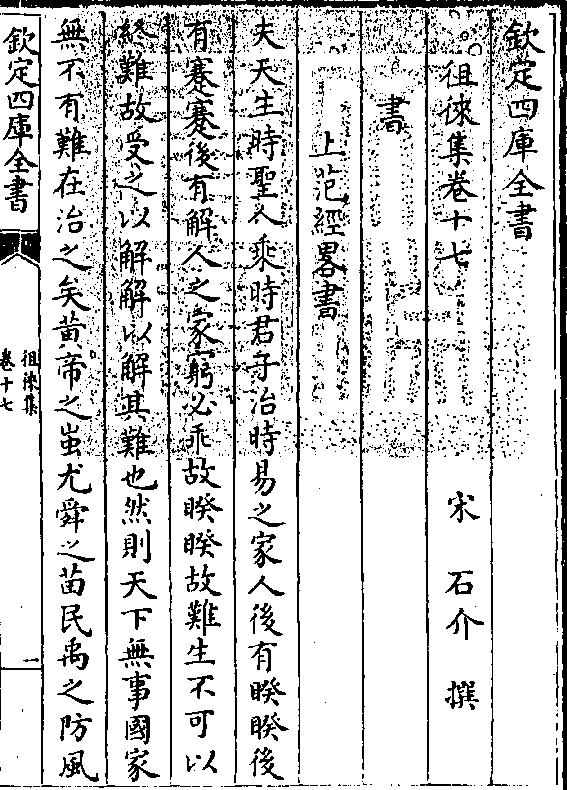 欽定四庫全書
徂徠集卷十七
宋 石介 撰
書
上范經畧書
夫天生時聖人乘時君子治時易之家人後有睽睽後
有蹇蹇後有解人之家窮必乖故睽睽故難生不可以
終難故受之以解解以解其難也然則天下無事國家
無不有難在治之矣黄帝之蚩尤舜之苗民禹之防風
欽定四庫全書
徂徠集
卷十七
一